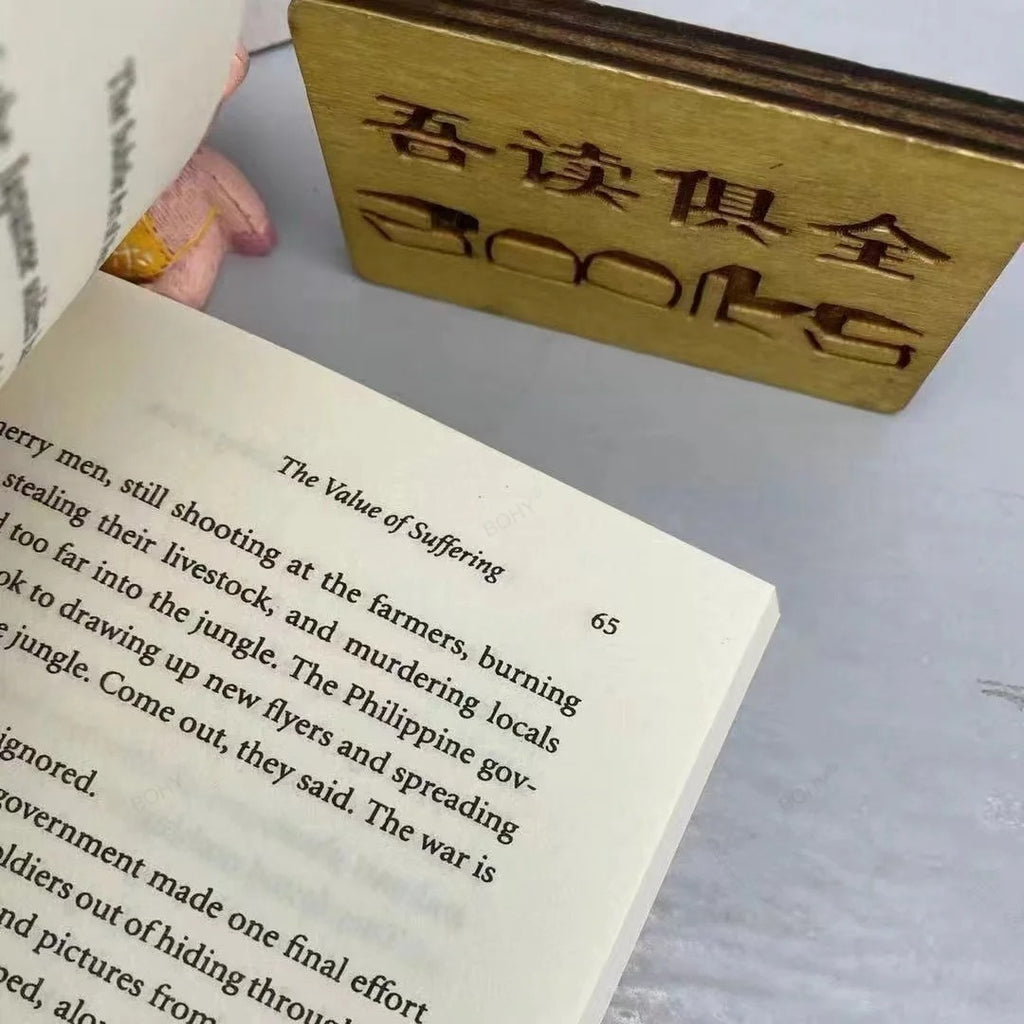 吾读俱全
Books
The Value of Suffering
65
merry men, still shooting at the farmers, burning
stealing their livestock, and murdering locals
too far into the jungle. The Philippine gov-
to drawing up new flyers and spreading
jungle. Come out, they said. The war is
ignored.
government made one final effort
soldiers out of hiding through
and pictures from
BOHY
BOHY